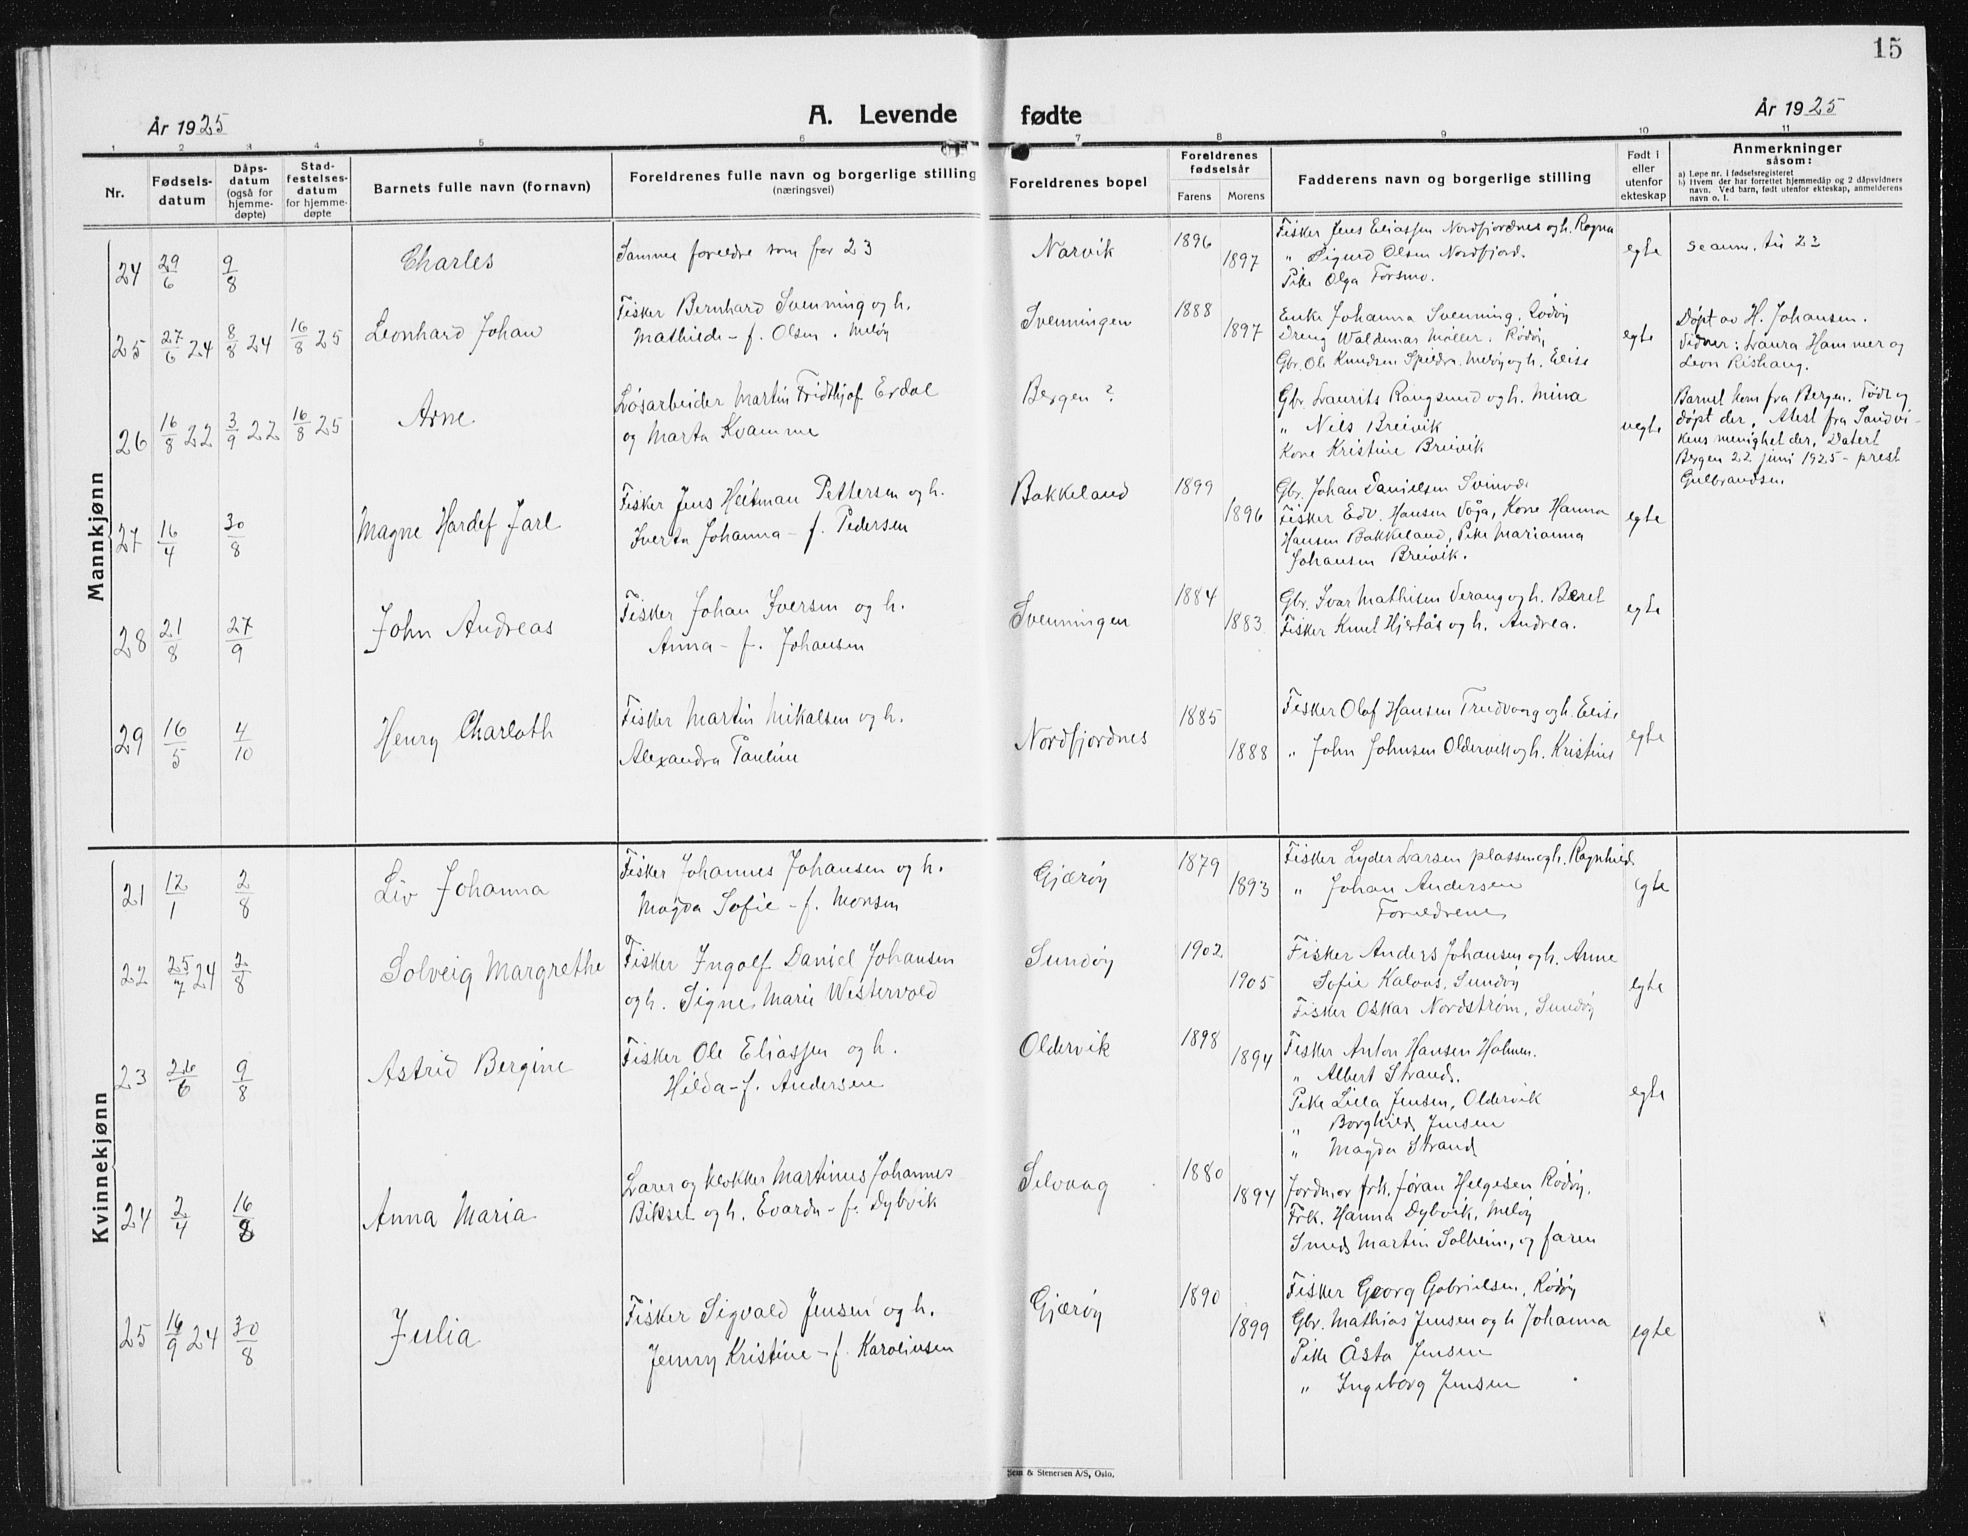 15
År 1925
A. Levende fødte
År 1925
1 2 3 4 5 6 7 8 9 10 11
Nr.
Fødsels-
datum
Dåps-
datum
(også for
hjemme-
døpte)
Stad-
festelses-
datum
for hjemme-
døpte
Barnets fulle navn (fornavn)
Foreldrenes fulle navn og borgerlige stilling
(næringsvei)
Foreldrenes bopel
Foreldrenes
fødselsår
Farens Morens
Fadderens navn og borgerlige stilling
Født i
eller
utenfor
ekteskap
Anmerkninger
såsom:
a) Løpe nr. i fødselsregisteret
b) Hvem der har forrettet hjemmedåp og 2 dåpsvidners
navn. Ved barn, født utenfor ekteskap, anmelderens
navn o. l.
Mannkjønn
24 29/6 9/8 Charles
Samme foreldre som for 23
Narvik 1896 1897
Fisker Jens Eliassen Nordfjordnes og h. Ragna
" Sigurd Olsen Nordfjord.
Pike Olga Forsmo.
egte
se anm. til 23
25 27/6 24 8/8 24 16/8 25 Leonhard Johan
Fisker Bernhard Svenning og h.
Mathilde - f. Olsen. Meløy
Svenningen 1888 1897
Enke Johanna Svenning, Rødøy
Dreng Waldemar Møller. Rødøy
Gbr. Ole Knudsen Spildra. Meløy og h. Elise
egte
Døpt av H. Johansen.
Vidner: Laura Hammer og
Leon Rishaug.
26 16/8 22 3/9 22 16/8 25 Arne
Løsarbeider Martin Fridthjof Erdal
og Marta Kvamme
Bergen?
Gbr. Laurits Rangsund og h. Mina
" Nils Breivik
Kone Kristine Breivik
uegte
Barnet kom fra Bergen. Født og
døpt der. Atest fra Sandvi-
kens menighet der. Datert
Bergen 22 juni 1925 - prest
Gulbrandsen
27 16/4 30/8 Magne Hardef Jarl
Fisker Jens Heitman Pettersen og h.
Iverta Johanna - f. Pedersen
Bakkeland 1899 1896
Gbr. Johan Danielsen Svinvær
Fisker Edv. Hansen Våga, Kone Hanna
Hansen Bakkeland, Pike Marianna
Johansen Breivik.
egte
28 21/8 27/9 John Andreas
Fisker Johan Iversen og h.
Anna - f. Johansen
Svenningen 1884 1883
Gbr. Ivar Mathisen Værang og h. Beret
Fisker Knut Hjertås og h. Andrea.
egte
29 16/5 4/10 Henry Charloth
Fisker Martin Mikalsen og h.
Alexandra Pauline
Nordfjordnes 1885 1888
Fisker Olaf Hansen Trudvang og h. Elise
" John Johnsen Oldervik og h. Kristine
egte
Kvinnekjønn
21 12/1 2/8 Liv Johanna
Fisker Johannes Johansen og h.
Magda Sofie - f. Monsen
Gjærøy 1879 1893
Fisker Lyder Larsen plassen og h. Ragnhild.
" Johan Andersen
Foreldrene
egte
22 25/7 24 2/8 Solveig Margrethe
Fisker Ingolf Daniel Johansen
og h. Signe Marie Westervold
Sundøy 1902 1905
Fisker Anders Johansen og h. Anne
Sofie Kalvøs, Sundøy
Fisker Oskar Nordstrøm, Sundøy
egte
23 26/6 9/8 Astrid Bergine
Fisker Ole Eliassen og h.
Hilda - f. Andersen
Oldervik 1898 1894
Fisker Anton Hansen Holmen.
" Albert Strand.
Pike Lilla Jensen, Oldervik
" Borghild Jensen
" Magda Strand
egte
24 2/4 16/8 Anna Maria
Lærer og klokker Martinus Johannes
Biksel og h. Evarda - f. Dybvik
Selvaag 1880 1894
Jordmor frk. Jøran Helgesen Rødøy.
Frk. Hanna Dybvik, Meløy
Smed Martin Solheim, og faren
25 16/9 24 30/8 Julia
Fisker Sigvald Jensen og h.
Jenny Kristine - f. Karolinsen
Gjærøy 1890 1899
Fisker Georg Gabrielsen, Rødøy
Gbr. Mathias Jensen og h Johanna
Pike Åsta Jensen
" Ingeborg Jensen
egte
& Stenersen A/S, Oslo.